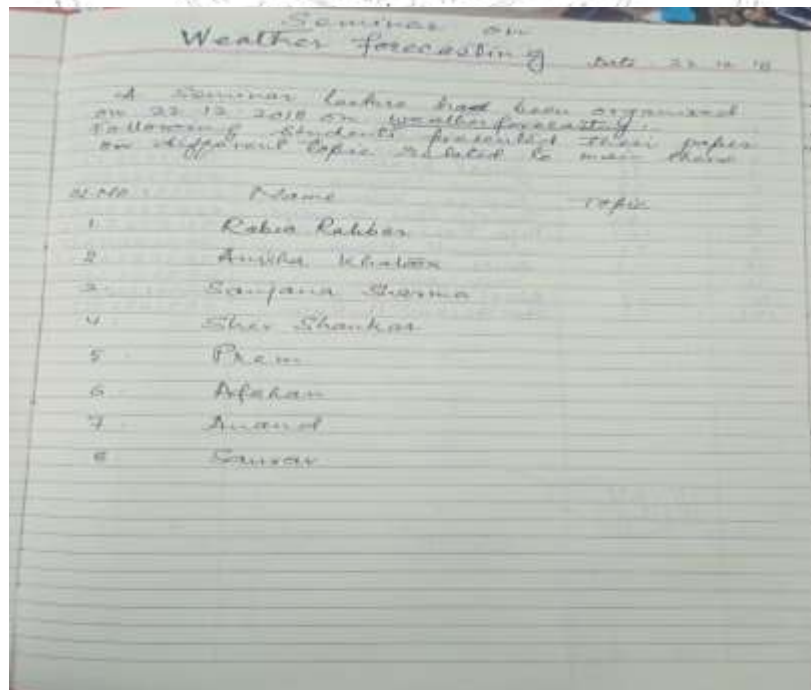 Seminar on
Weather forecasting Date 22 12 18
A Seminar lecture had been organised
on 22 12 2018 on weather forecasting.
Following Students presented their paper
on different topic related to main
Sl. No. Name Topic
1. Rabia Rahbar
2 Khatoon
3. Sanjana Sharma
4. Shiv Shankar
5. Prem
6. Afshan
7. Anand
8 Saurav